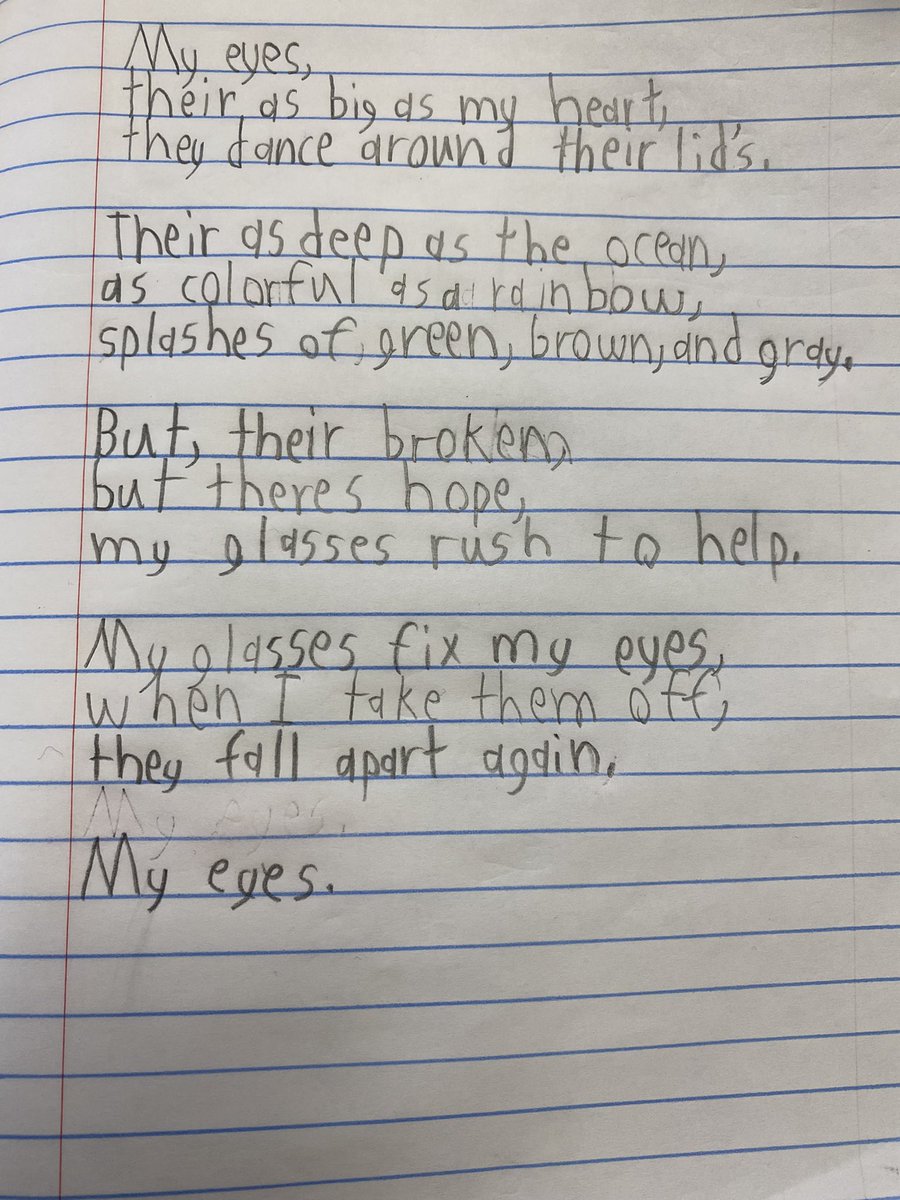 My eyes,
their as big as my heart,
they dance around their lid's.
Their as deep as the ocean,
as colorful as a rainbow,
splashes of, green, brown, and gray.
But, their broken,
but theres hope,
my glasses rush to help.
My glasses fix my eyes,
when I take them off,
they fall apart again.
My eyes.
My eyes.